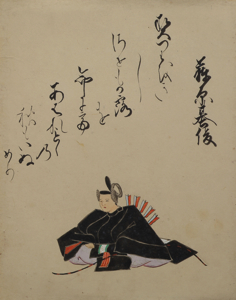 藤原基俊
契りおき
し
させもか露
を
命にて
あはれことし乃
秋もいぬ
めり